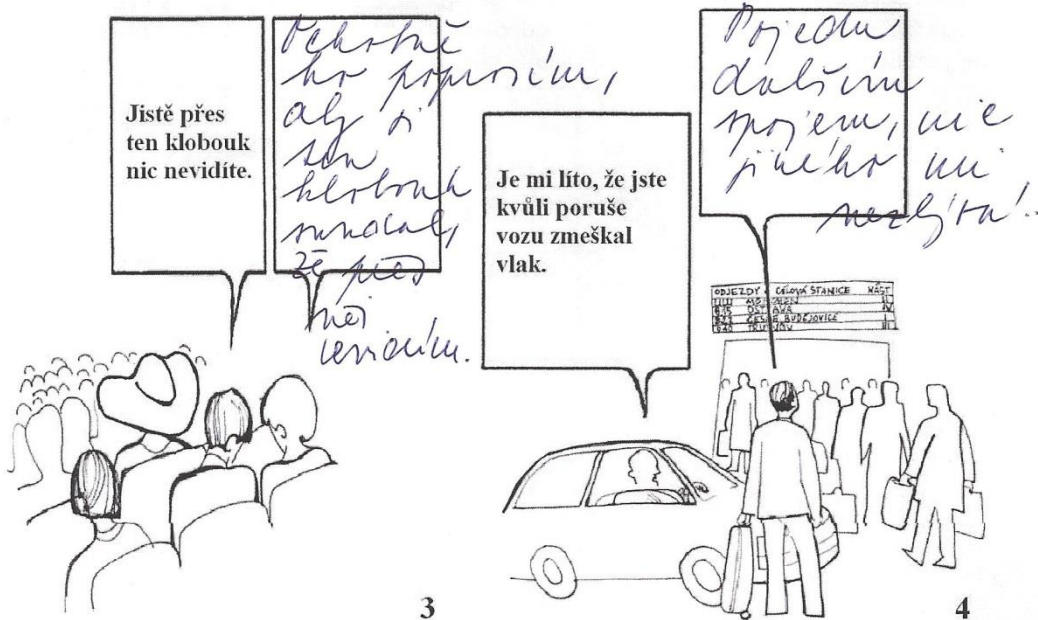 Jistě přes
ten klobouk
nic nevidíte.
ho poprosím,
aby si
ten
klobouk
sundal,
že přes
něj
nevidím.
3
Je mi líto, že jste
kvůli poruše
vozu zmeškal
vlak.
Pojedu
dalším
spojem, nic
jiného mi
nezbývá..
ODJEZDY CÍLOVÁ STANICE NÁST
OSTRAVA
ČESKÉ BUDĚJOVICE
TRUTNOV
4